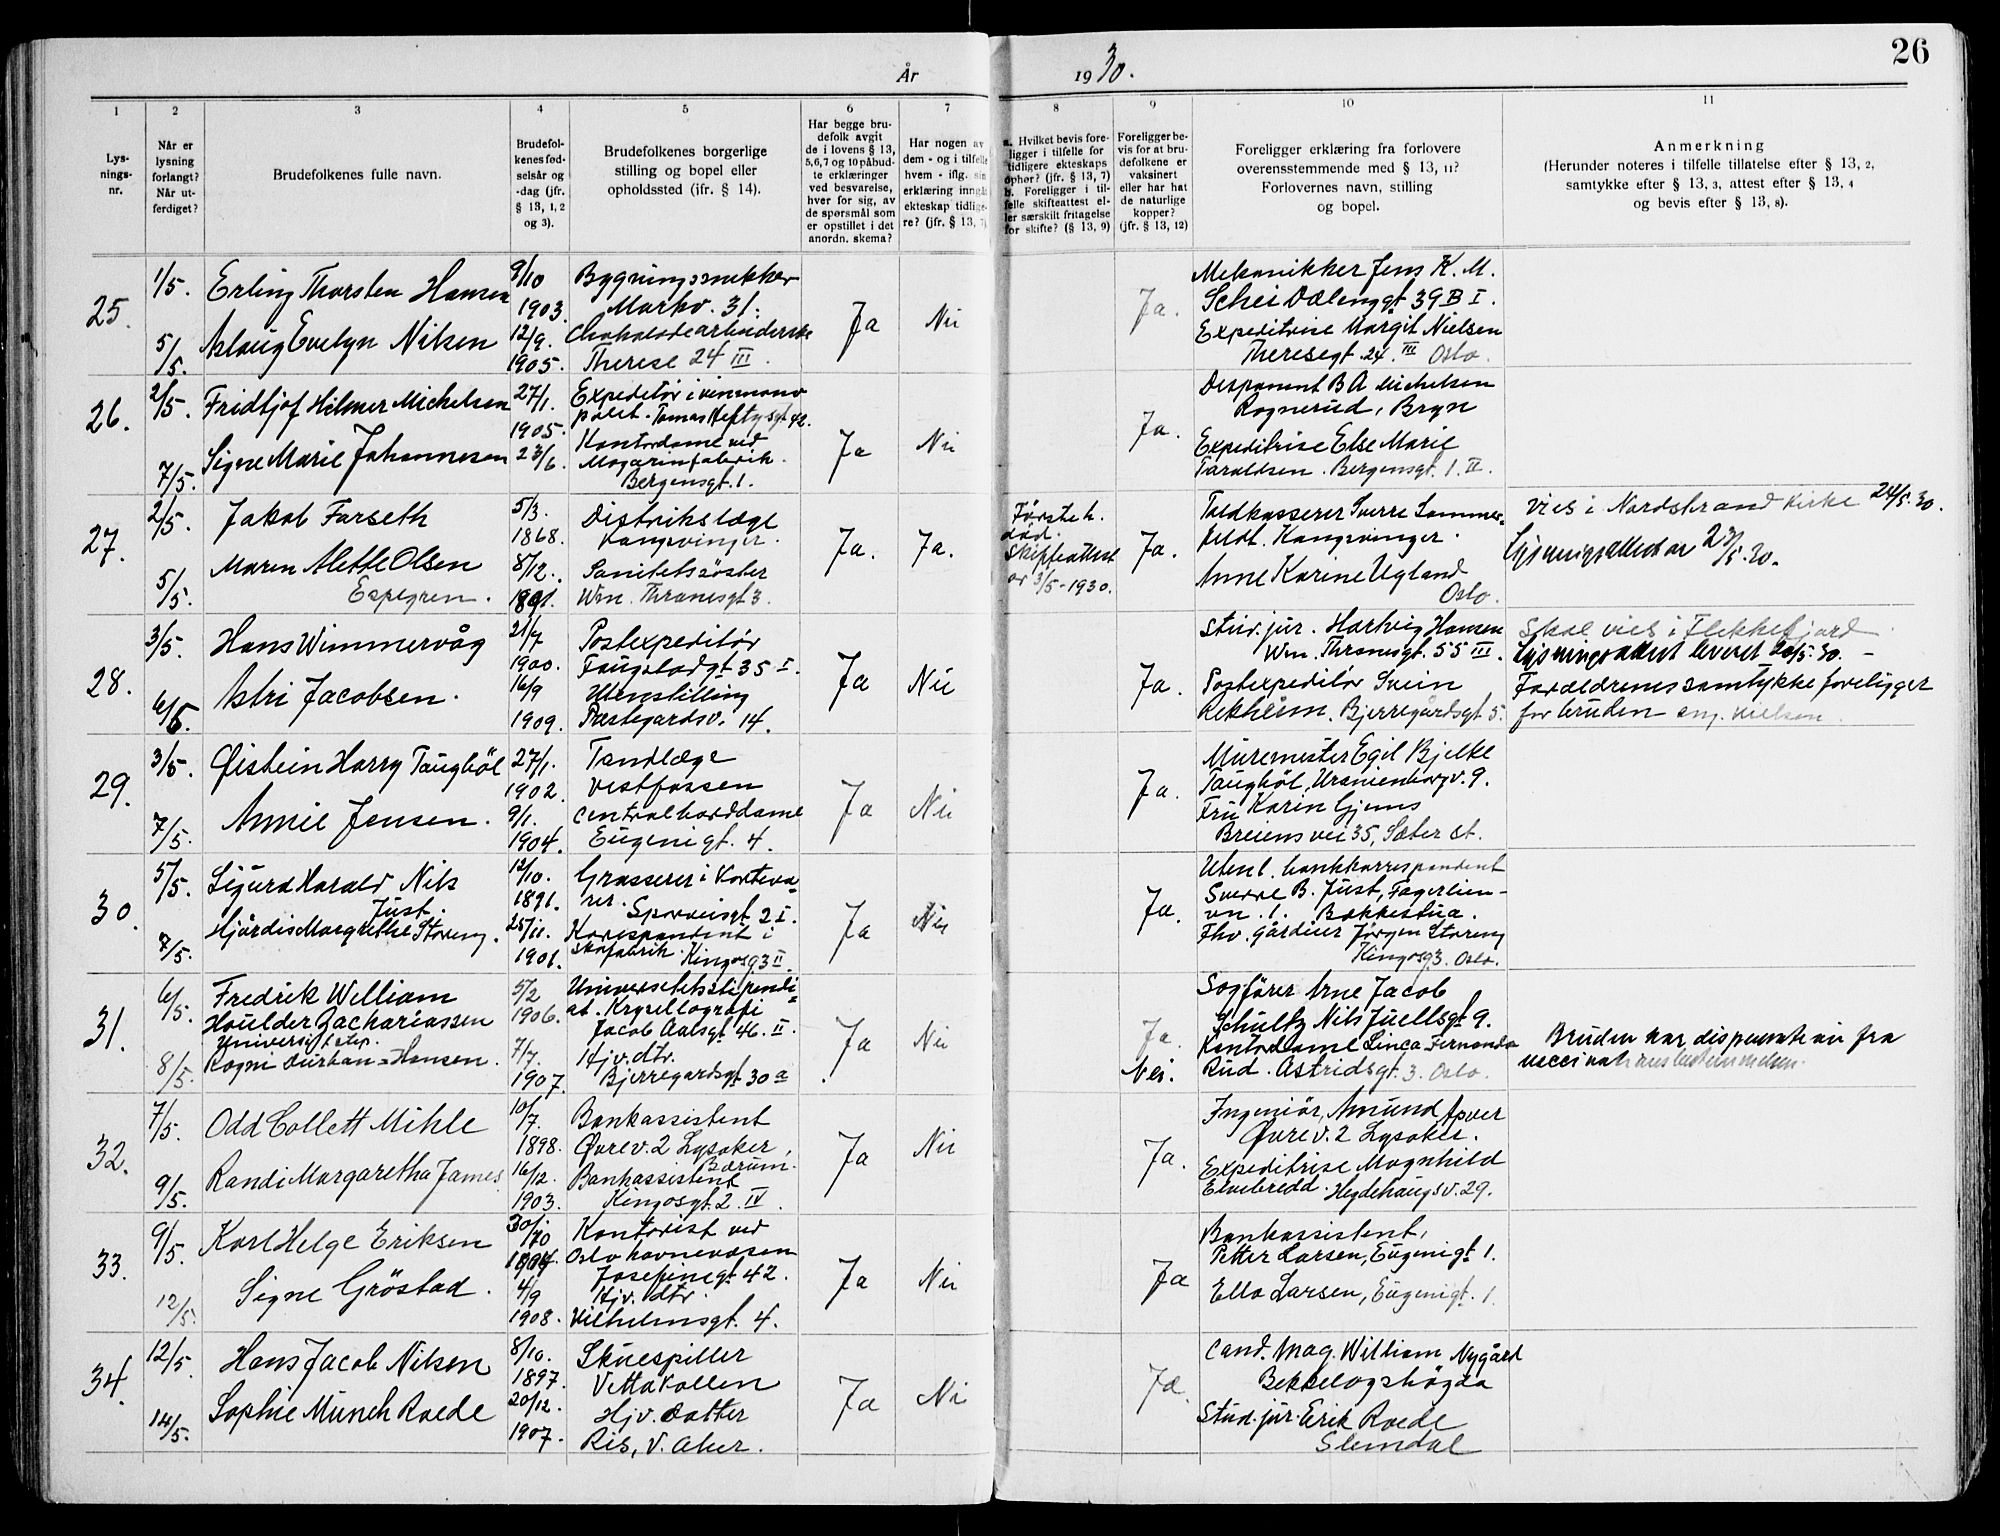 26
År
1930.
1
2
3
4
5
6
7
8
9
10
11
Lys-
nings-
nr.
Når er
lysning
forlangt?
Når ut-
ferdiget?
Brudefolkenes fulle navn.
Brudefol-
kenes fød-
selsår og
-dag (jfr.
§ 13, 1, 2
og 3).
Brudefolkenes borgerlige
stilling og bopel eller
opholdssted (jfr. § 14).
Har begge bru-
defolk avgit
de i lovens § 13,
5, 6, 7 og 10 påbud-
te erklæringer
ved besvarelse,
hver for sig, av
de spørsmål som
er opstillet i det
anordn. skema?
Har nogen av
dem - og i tilfelle
hvem - iflg. sin
erklæring inngå
ekteskap tidlige-
re? (jfr. § 13, 7)
a. Hvilket bevis fore-
ligger i tilfelle for
tidligere ekteskaps
ophør? (jfr. § 13, 7)
b. Foreligger i til-
felle skifteattest el-
ler særskilt fritagelse
for skifte? (§ 13, 9)
Foreligger be-
vis for at bru-
defolkene er
vaksinert
eller har hat
de naturlige
kopper?
(jfr. § 13, 12)
Foreligger erklæring fra forlovere
overensstemmende med § 13, 11?
Forlovernes navn, stilling
og bopel.
Anmerkning
(Herunder noteres i tilfelle tillatelse efter § 13, 2,
samtykke efter § 13, 3, attest efter § 13, 4
og bevis efter § 13, 8).
25.
1/5.
5/5.
Erling Thorsten Hansen
Aslaug Evelyn Nilsen
9/10
1903.
12/9.
1905.
Bygningssnekker
Markv. 31.
Chokoladearbeiderske
Therese 24 III.
Ja
Nei
Ja.
Mekanikker Jens K. M.
Schei Dælenggt 39 B I.
Expeditrise Margit Nielsen
Theresegt. 24. III Oslo.
26.
2/5.
7/5.
Fridtjof Hilmer Michelsen
Signe Marie Johannesen
27/1.
1905.
23/6.
Expeditør i vinmono
polet. Tomas Heftysgt 42.
Kontordame ved
Magarinfabrik.
Bergensgt. 1.
Ja
Nei
Ja.
Disponent B A Michelsen
Rognerud, Bryn
Expeditrise Else Marie
Taraldsen. Bergensgt. 1. II.
27.
2/5.
5/5.
Jakob Farseth
Maren Alette Olsen
Espegren.
5/3.
1868.
8/12.
1891.
Distriktslæge
Kongsvinger.
Sanitetssöster
Wm. Thranesgt 3.
Ja.
Ja.
Første h.
død.
Skifteattest
av 3/5-1930.
Ja.
Toldkasserer Sverre Sommer-
feldt. Kongsvinger.
Anne Karine Ugland
Oslo.
Vies i Nordstrand Kirke 24/5.30.
Lysningsattest av 23/5.30.
28.
3/5.
6/5.
Hans Wimmervåg
Astri Jacobsen.
21/7
1900.
16/9
1909.
Postexpeditör
Faugstadgt 35 I.
Uten stilling
Præstegårdsv. 14.
Ja
Nei
Ja.
Stud. jur. Hartvig Hansen
Wm. Thranesgt. 55 III.
Postexpeditör Svein
Rekheim. Bjerregårdsgt 5.
Skal vies i Flekkefjord
Lysningsattest leveret 20/5.30. -
Forældrenes samtykke foreligger
for bruden
29.
3/5.
7/5.
Øistein Harry Taugböl
Annie Jensen.
27/1.
1902.
9/1.
1904.
Tandlæge
Vestfossen
Centralborddame
Eugenigt. 4.
Ja
Nei
Ja.
Muremester Egil Bjelke
Taugböl, Uranienborgv. 9.
Fru Karin Gjems
Breiens vei 35, Sæter st.
30.
5/5.
7/5.
Sigurd Harald Nils
Just.
Hjördis Margrethe Storeng.
12/10.
1891.
25/11.
1901.
Grosserer i Korteva
rer.
Sporveisgt. 2 I.
Korrespondent i
Skofabrik. Kingosg 3 II.
Ja
Nei
Ja.
Utenl. bankkorrespondent
Sverre B. Just, Fagerlien-
vn. 1. Bækkestua.
Fhv. gårdeier Jörgen Storeng
Kingosg 3. Oslo.
31.
6/5.
8/5.
Fredrik William
Houlder Zachariassen
Ragni Durban-Hansen.
5/2
1906.
7/7.
1907.
Universitetsstipendi-
at. Krystallografi
Jacob Aalsgt 46. II.
Hjv. dtr.
Bjerregårdsgt 30 a
Ja
Nei
Ja.
Nei.
Sagförer Arne Jacob
Schultz Nils Juellsgt 9.
Kontordame Linca Fernanda
Rud. Astridsgt. 3. Oslo.
Bruden har dispensation fra
vaccinationsbestemmelsen.
32.
7/5.
9/5.
Odd Collett Mihle
Randi Margaretha James
10/7.
1898.
16/12.
1903.
Bankassistent
Øvre v. 2 Lysaker,
Bærum.
Bankassistent
Kingosgt. 2 IV.
Ja
Nei
Ja.
Ingeniör, Amund
Øvre v. 2 Lysaker.
Expeditrise Magnhild
Elvebredd. Hegdehaugsv. 29.
33.
9/5.
12/5.
Karl Helge Eriksen
Signe Gröstad.
30/10
4/9
1908.
Kontorist ved
Oslo havnevæsen
Josefinegt 42.
Hjv. dtr.
Vilhelmsgt. 4.
Ja
Nei
Ja
Bankassistent,
Petter Larsen, Eugenigt 1.
Ella Larsen, Eugenigt. 1.
34.
12/5.
14/5.
Hans Jacob Nilsen
Sophie Munch Roede
8/10.
1897.
20/12.
1907.
Skuespiller
Vettakollen
Hjv. datter
Ris, V. Aker.
Ja
Nei
Ja.
Cand. mag. William Nygård
Bekkelagshögda
Stud. jur. Erik Roede
Slemdal